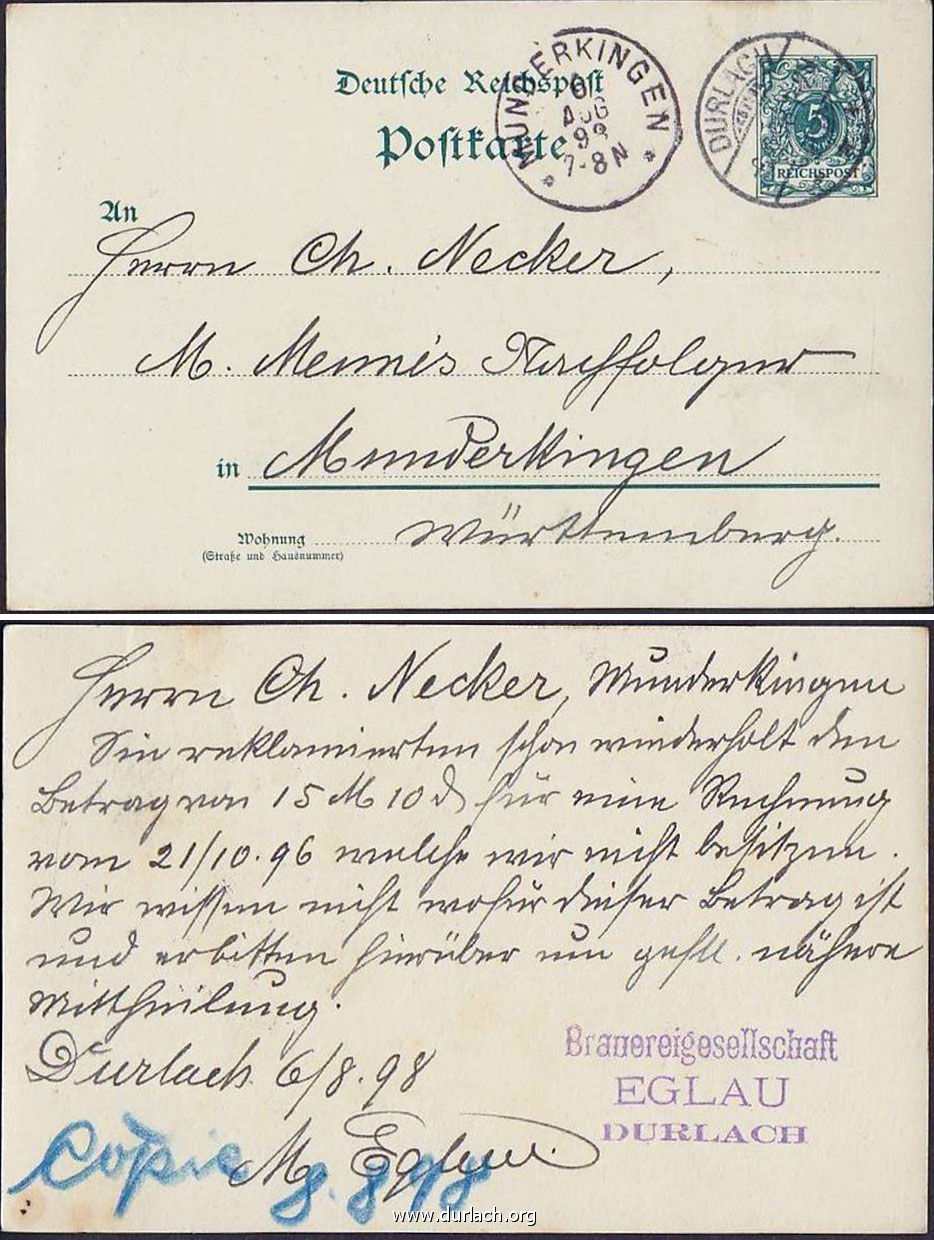 Deutsche Reichspost
Postkarte
MUNDERKINGEN
6
AUG
98
7-8N
DURLACH
5
REICHSPOST
An
Herrn Ch. Necker,
M. Nachfolger
in Munderkingen
Wohnung
(Straße und Hausnummer)
Württemberg.
Herrn Ch. Necker, Munderkingen
Sie reklamierten schon wiederholt den
Betrag von 15 M 10 d für eine Rechnung
vom 21/10.96 welche wir nicht besitzen.
Wir wissen nicht wofür dieser Betrag ist
und erbitten hierüber um gefll. nähere
Mittheilung.
Durlach 6/8.98
Brauereigesellschaft
EGLAU
DURLACH
M Eglau.
Copie 8.8.98
www.durlach.org